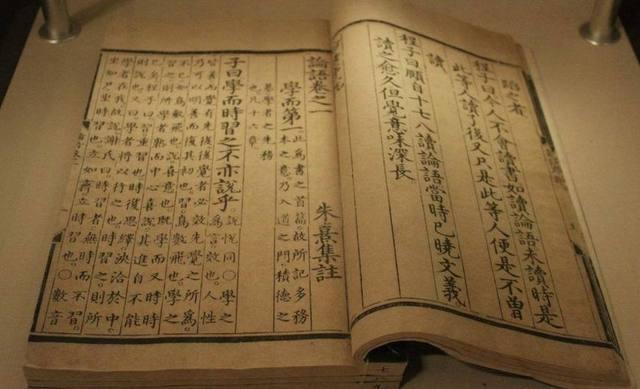 蹈之者
程子曰今人不會讀書如讀論語未讀時是
此等人讀了後又只是此等人便是不曾
讀
程子曰頤自十七八讀論語當時已曉文義
讀之愈久但覺意味深長
論語卷之一
朱熹集註
學而第一 此為書之首篇故所記多務
本之意乃入道之門積德之
基學者之先務
也凡十六章
子曰學而時習之不亦說乎 說悅同○學之
為言效也人性
皆善而覺有先後後覺者必效先覺之所為
乃可以明善而復其初也習鳥數飛也學之
不已如鳥數飛也說喜意也既學而又時時
習之則所學者熟而中心喜說其進自不能
已矣程子曰習重習也時復思繹浹洽於中
則說也又曰學者將以行之也時習之則所
學者在我故說謝氏曰時習者無時而不習
坐如尸坐時習也立如齊立時習也○數音